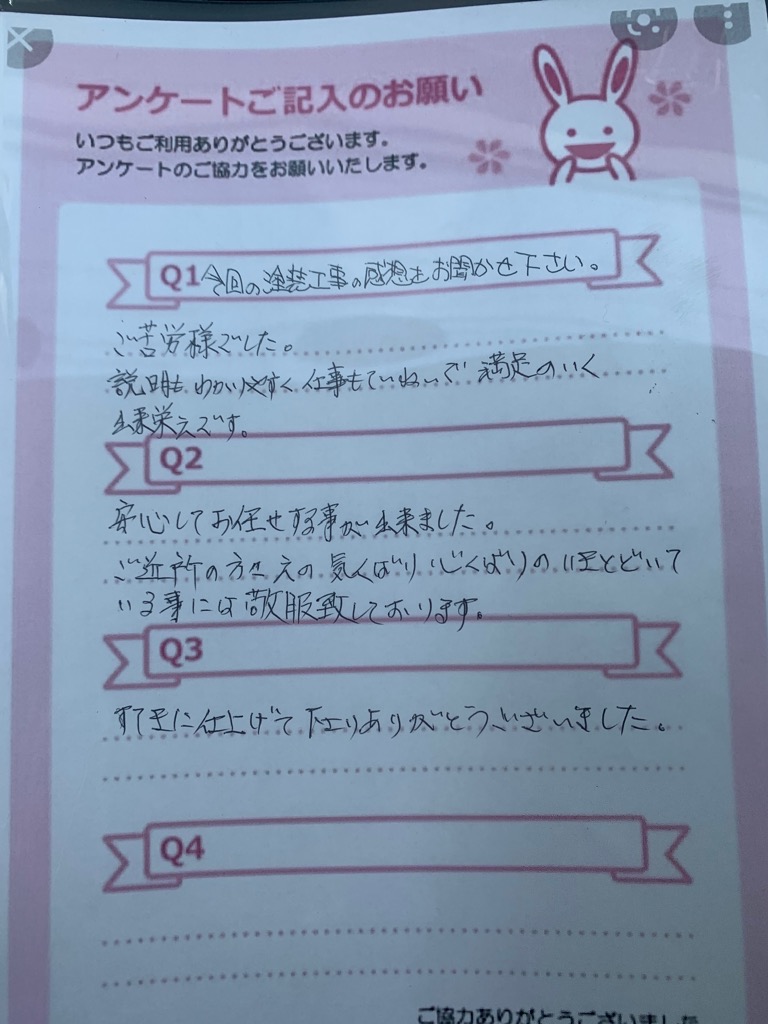 アンケートご記入のお願い
いつもご利用ありがとうございます。
アンケートのご協力をお願いいたします。
Q1 今回の塗装工事の感想をお聞かせ下さい。
ご苦労様でした。
説明もわかりやすく仕事もていねいで満足のいく
出来栄えです。
Q2
安心してお任せする事が出来ました。
ご近所の方々えの気くばり心くばりの ほどどいて
いる事には敬服致しております。
Q3
すてきに仕上げて下さりありがとうございました。
Q4
ご協力ありがとうございました